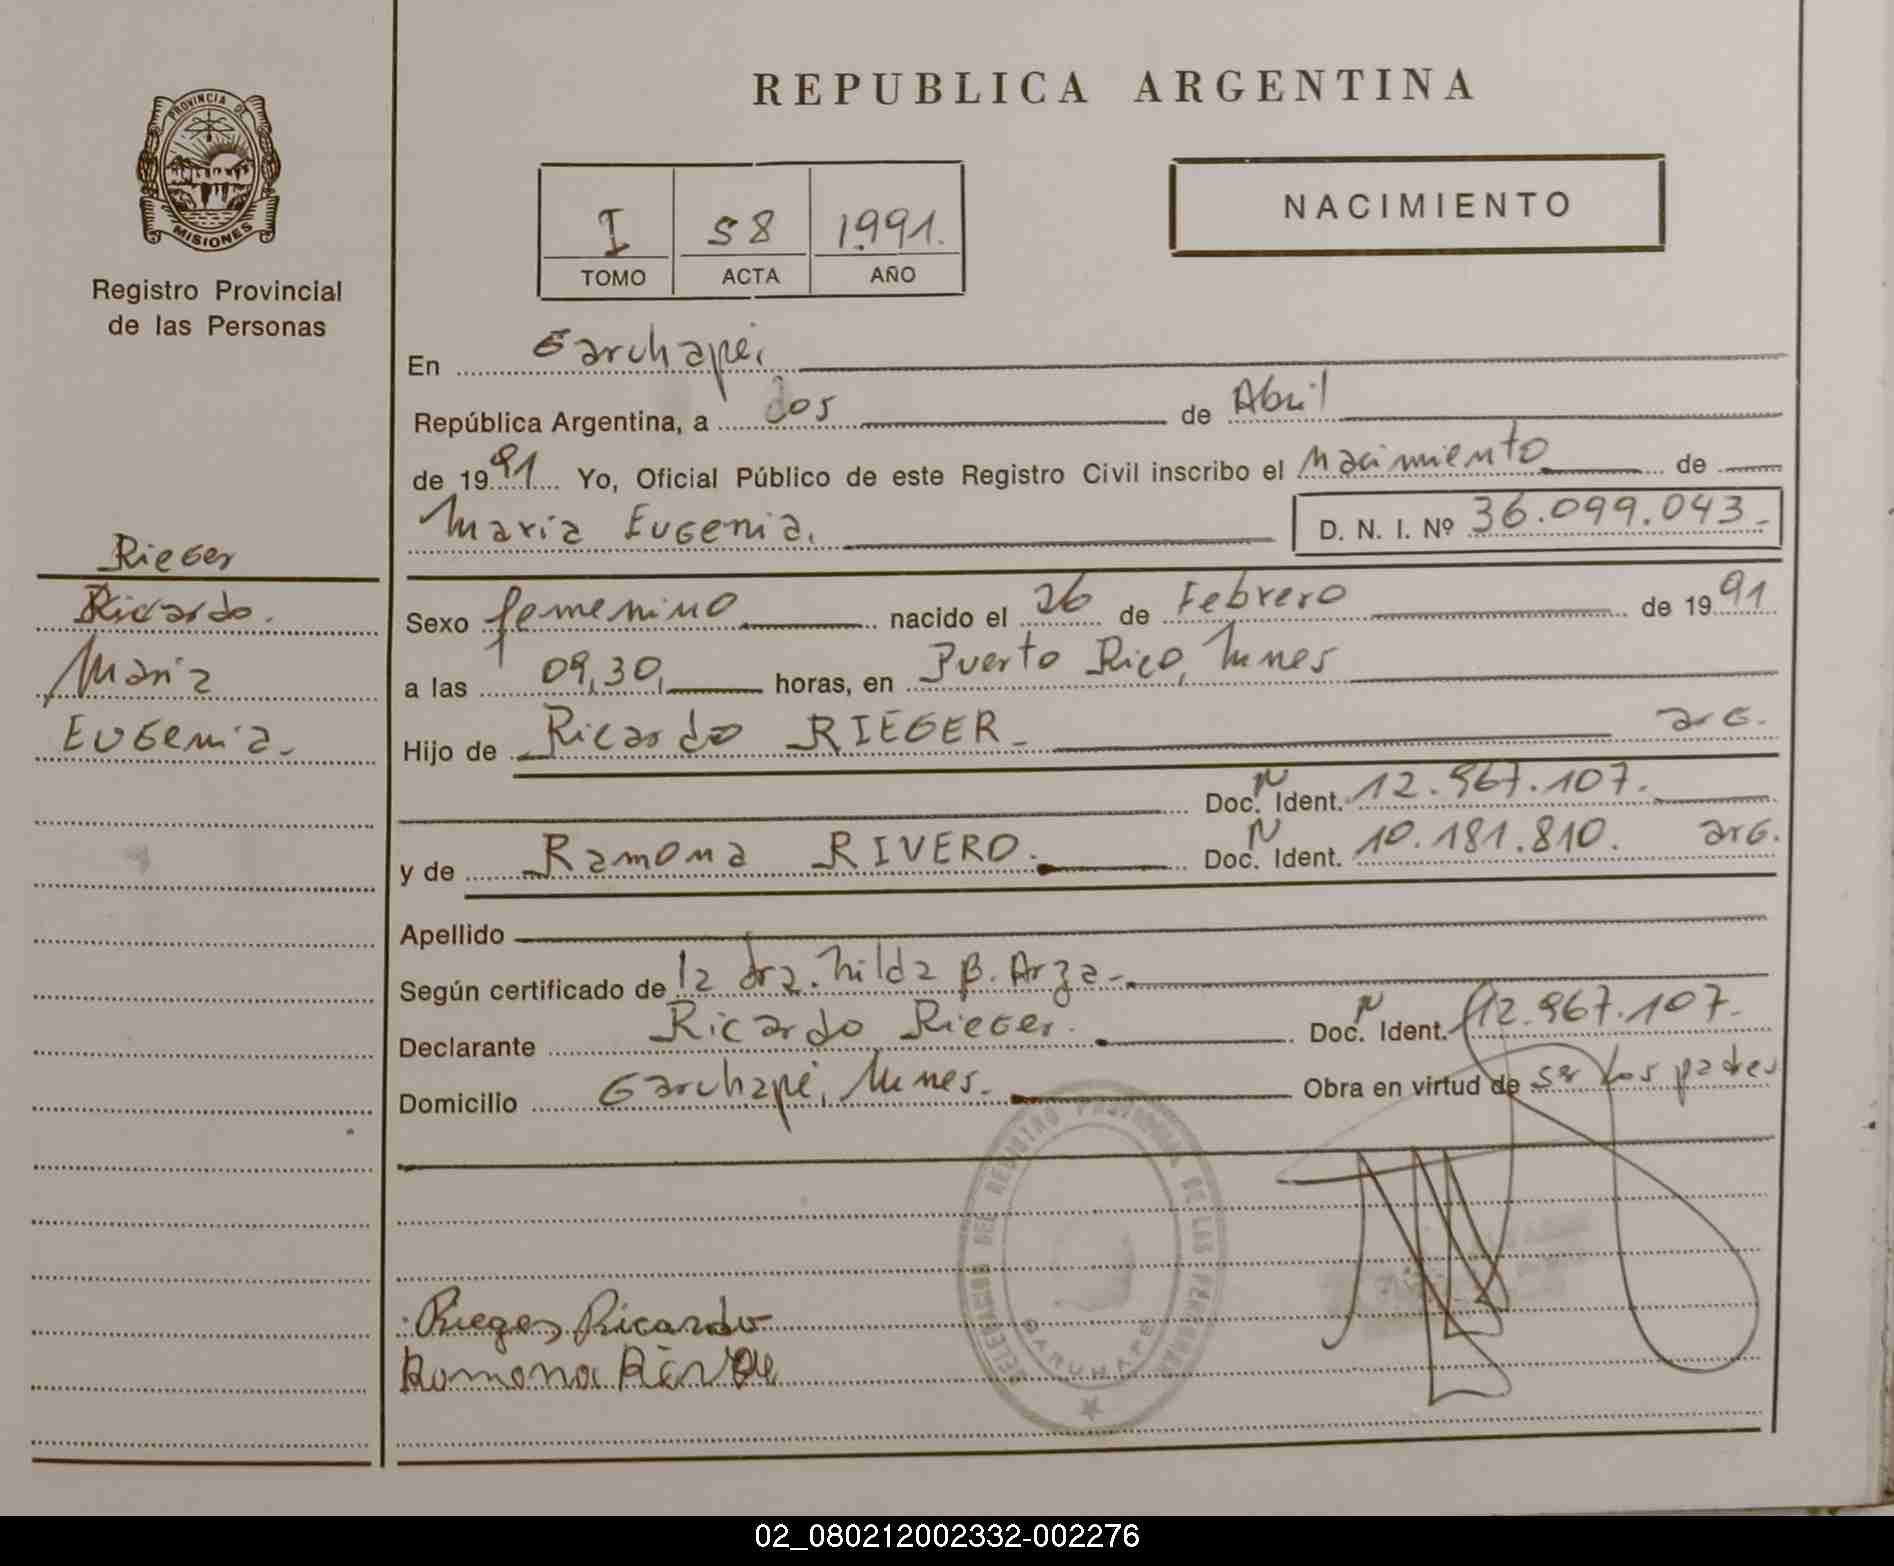 PROVINCIA DE
MISIONES
Registro Provincial
de las Personas
Rieger
Ricardo.
Maria
Eugenia.
REPUBLICA ARGENTINA
I 58 1991.
TOMO ACTA AÑO
NACIMIENTO
En Garuhapé,
República Argentina, a dos de Abril
de 1991 Yo, Oficial Público de este Registro Civil inscribo el Nacimiento de
Maria Eugenia. D. N. I. Nº 36.099.043.-
Sexo femenino nacido el 26 de Febrero de 1991
a las 09,30, horas, en Puerto Rico, Mnes
Hijo de Ricardo RIEGER - arg.
Doc. N Ident. 12.967.107.
y de Ramona RIVERO. Doc. N Ident. 10.181.810. arg.
Apellido
Según certificado de la dra. Nilda B. Arza-
Declarante Ricardo Rieger. Doc. N Ident. 12.967.107.
Domicilio Garuhapé, Mnes. Obra en virtud de ser los padres
DEL REGISTRO PROVINCIAL DE LAS PERSONAS
GARUHAPE
Rieger Ricardo
Ramona
02_080212002332-002276